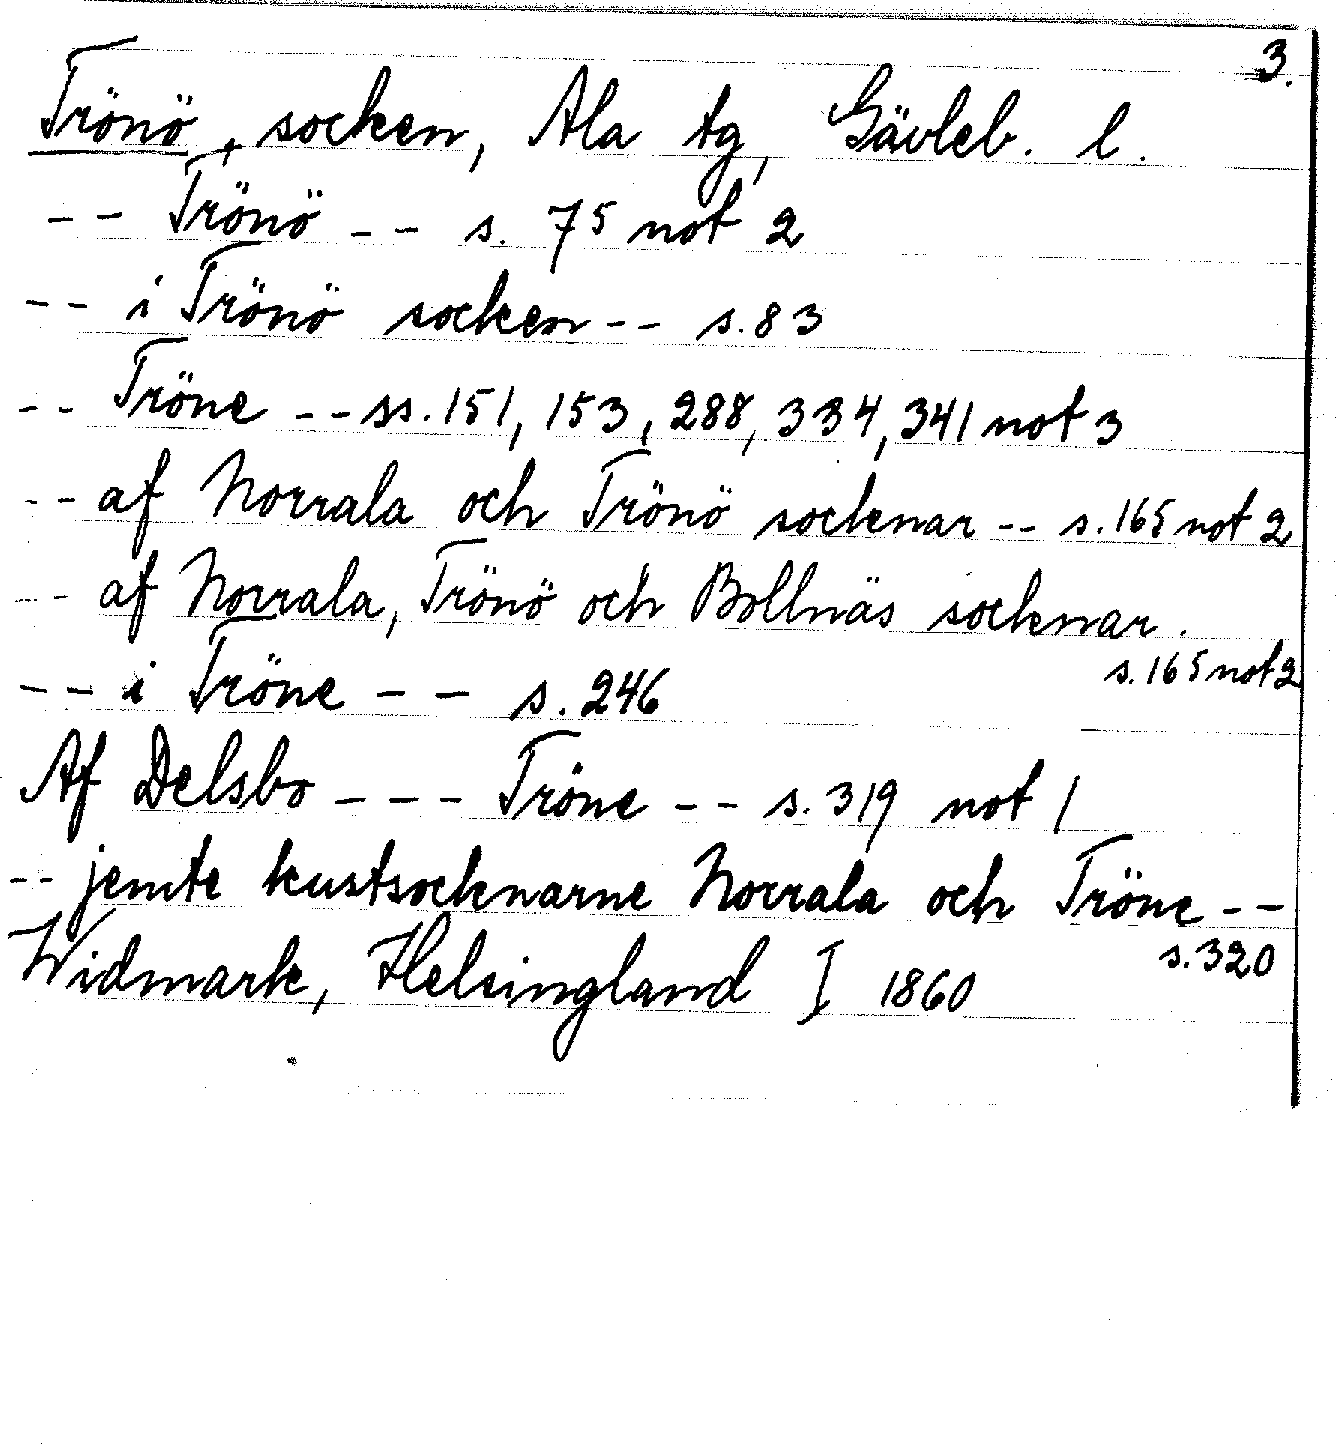 3.
Trönö, socken, Ala tg, Gävleb. l.
-- Trönö -- s. 75 not 2
-- i Trönö socken -- s. 83
-- Tröne -- ss. 151, 153, 288, 334, 341 not 3
-- af Norrala och Trönö socknar -- s. 165 not 2
-- af Norrala, Trönö och Bollnäs socknar.
s. 165 not 2
-- i Tröne -- s. 246
Af Delsbo --- Tröne -- s. 319 not 1
-- jemte kustsocknarne Norrala och Tröne --
s. 320
Widmark, Helsingland I 1860